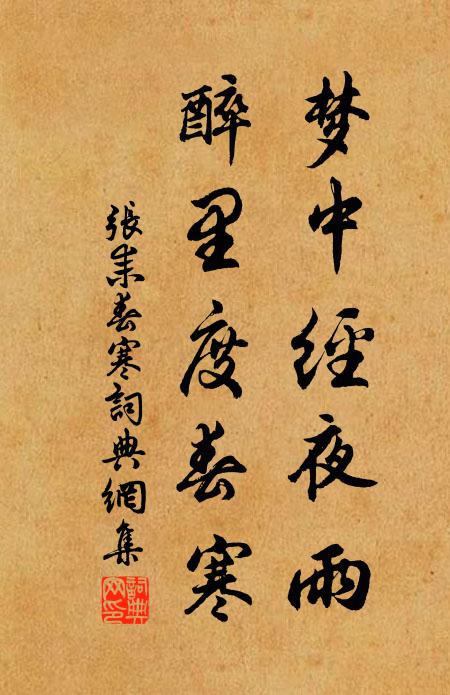 梦中經夜雨
醉里度春寒
張耒春寒詞典網集
詞典
网印